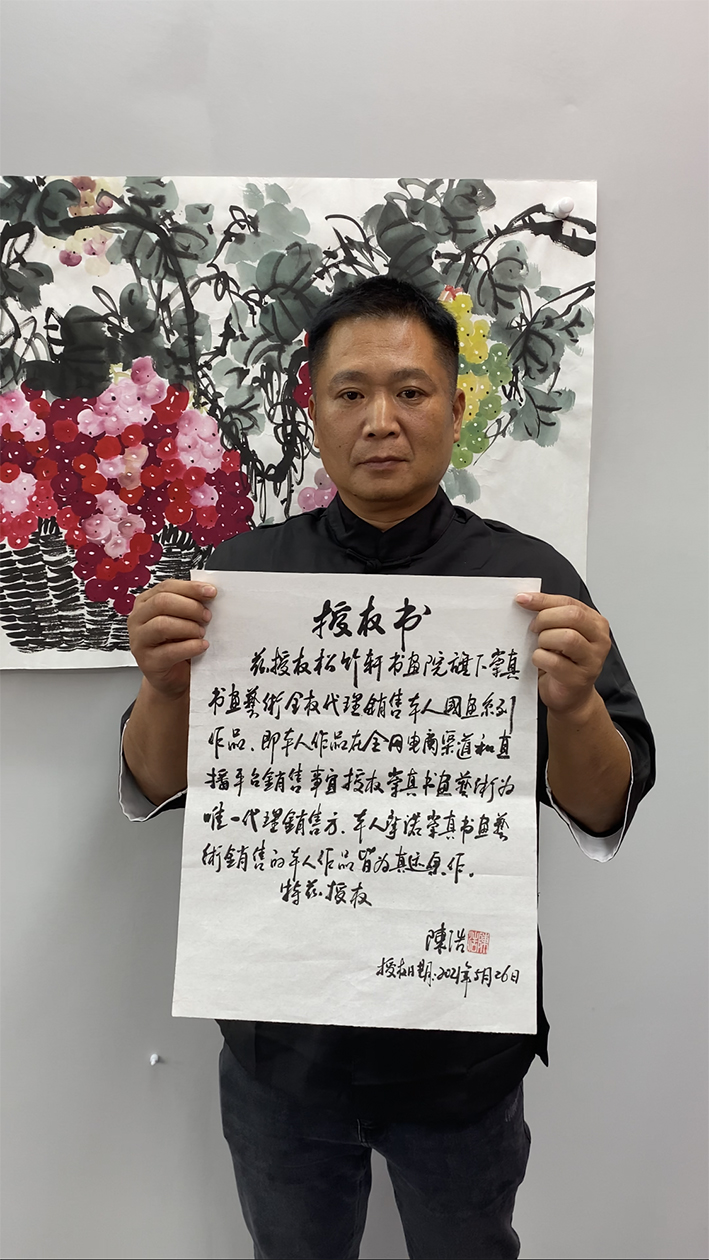 授权书
兹授权松竹轩书画院旗下崇真
书画藝術全权代理销售本人國画系列
作品、即本人作品在全网电商渠道和直
播平台销售事宜授权崇真书画藝術为
唯一代理销售方、本人承诺崇真书画藝
術销售的本人作品皆为真迹原作。
特兹授权
陳浩
授权日期:2021年5月26日